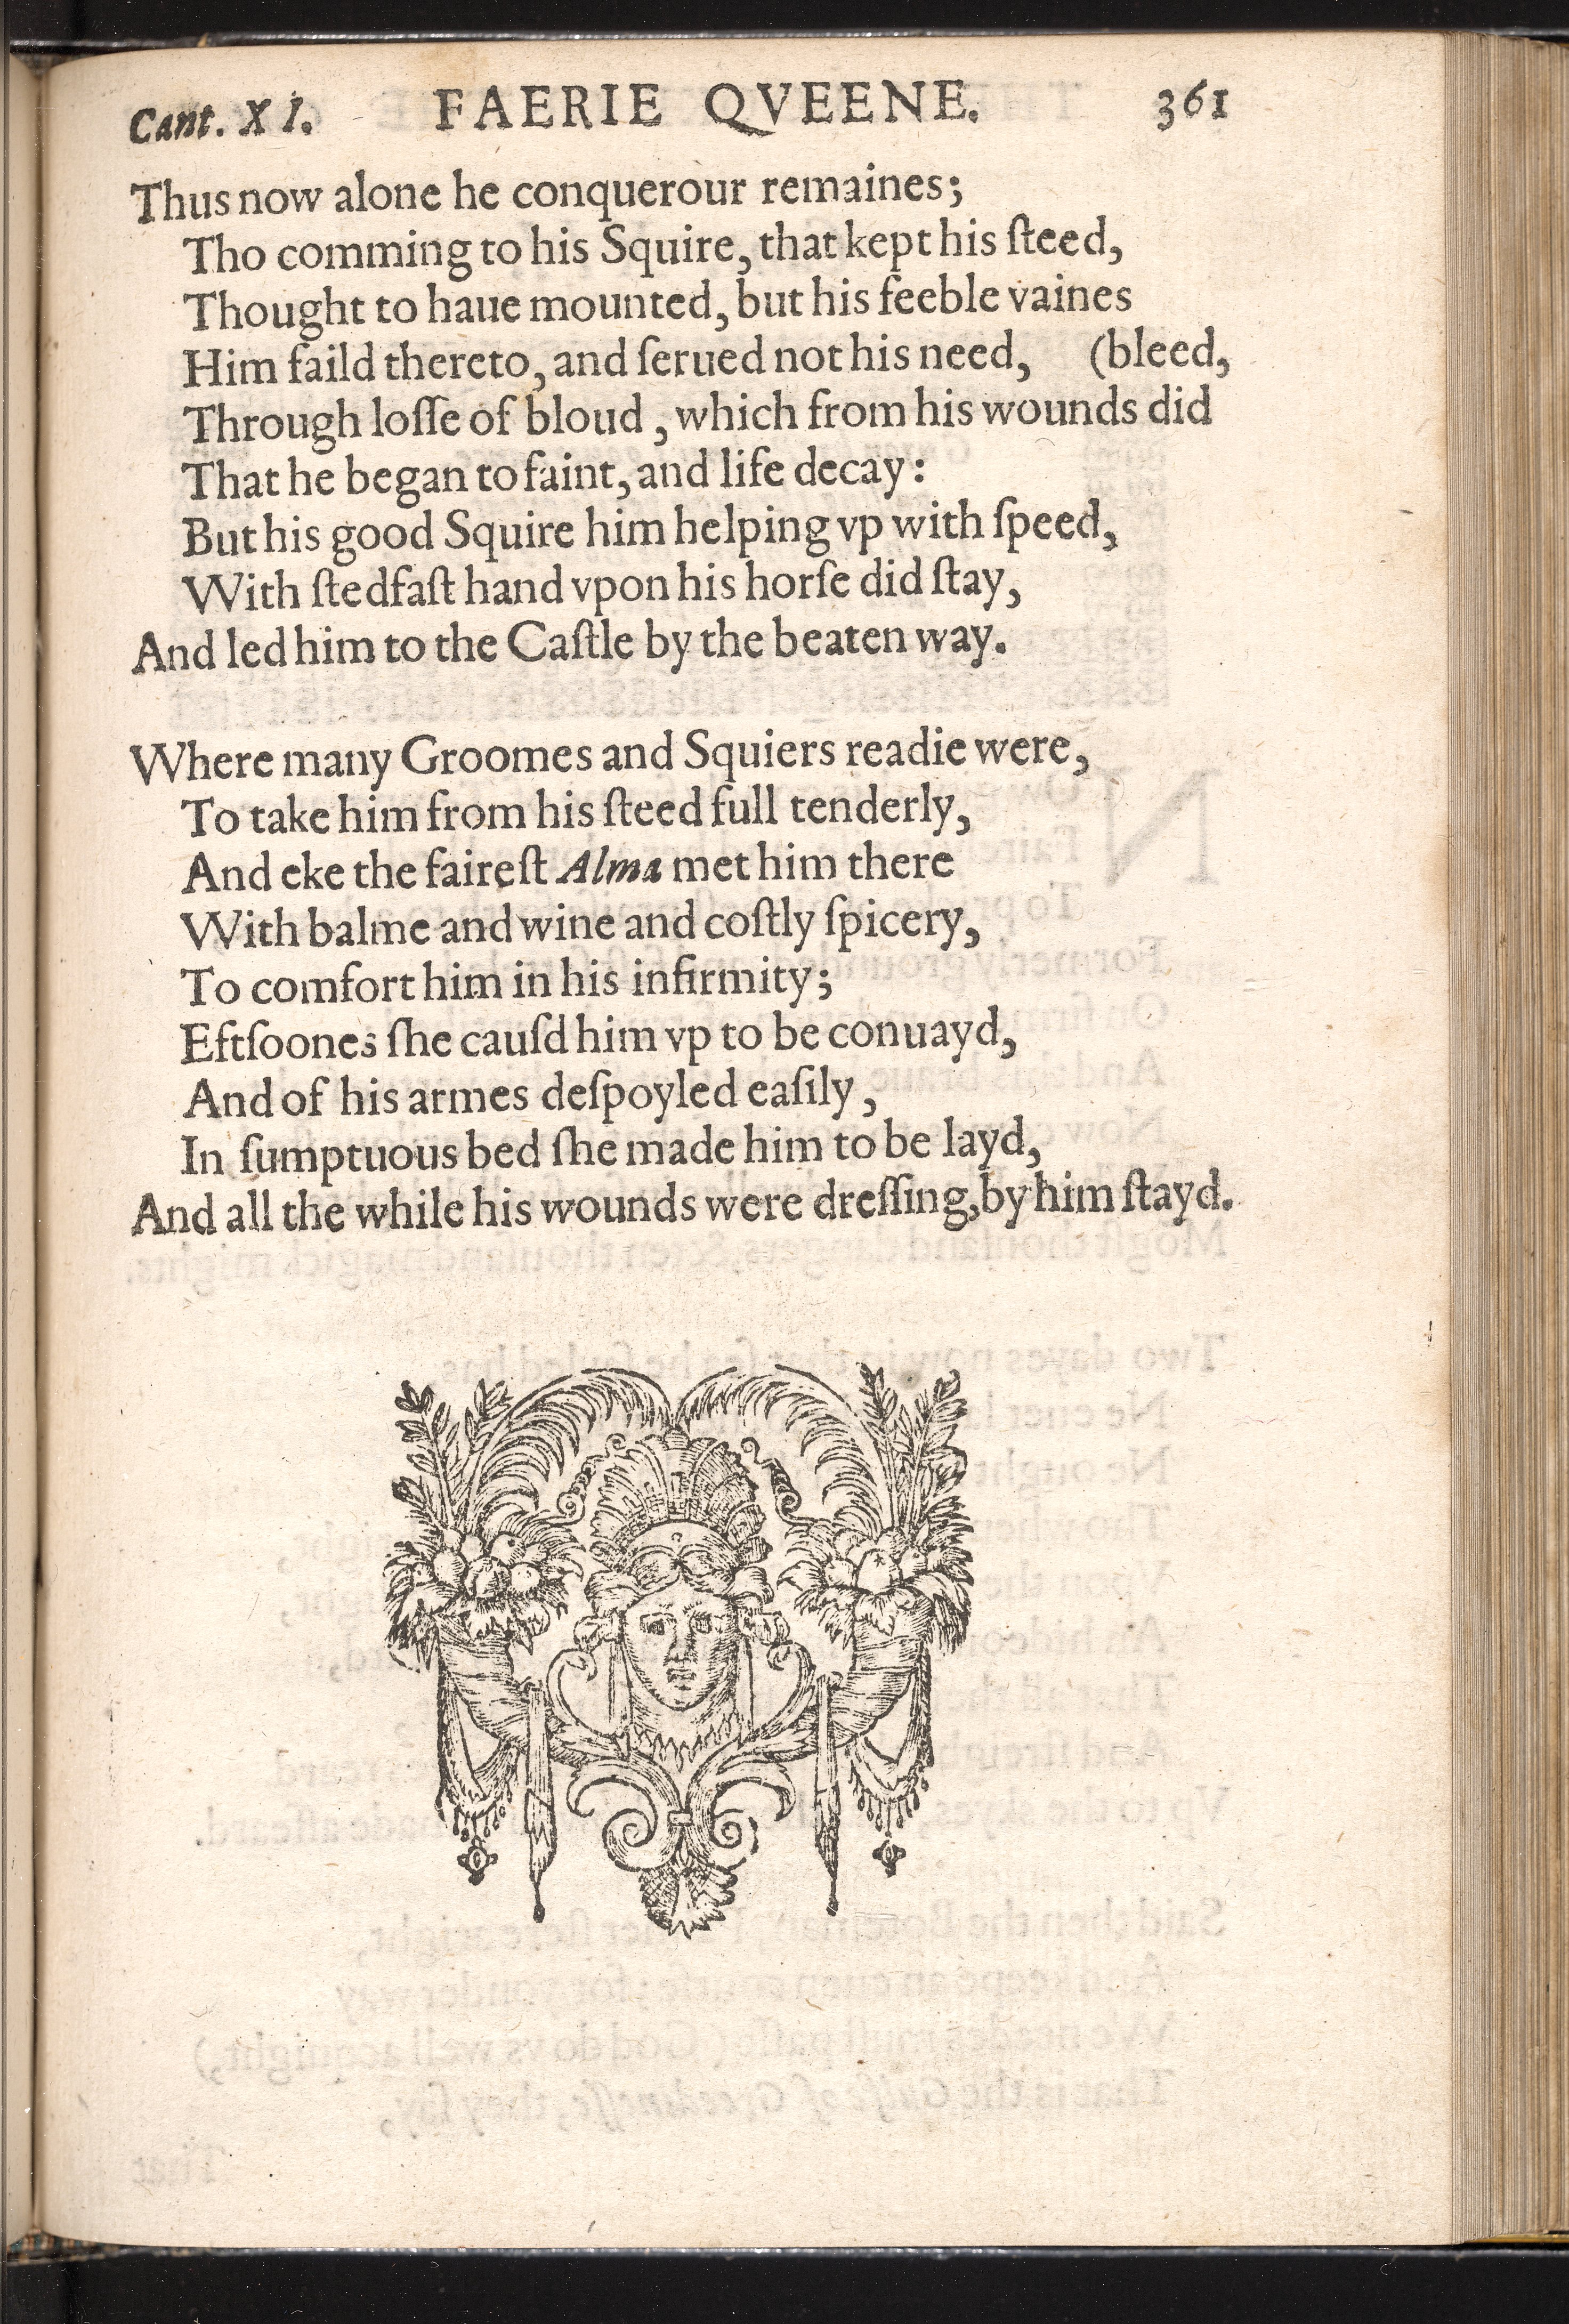 Cant. XI. FAERIE QVEENE. 361
Thus now alone he conquerour remaines;
Tho comming to his Squire, that kept his ſteed,
Thought to haue mounted, but his feeble vaines
Him faild thereto, and ſerued not his need, (bleed,
Through loſſe of bloud, which from his wounds did
That he began to faint, and life decay:
But his good Squire him helping vp with ſpeed,
With ſtedfaſt hand vpon his horſe did ſtay,
And led him to the Caſtle by the beaten way.
Where many Groomes and Squiers readie were,
To take him from his ſteed full tenderly,
And eke the faireſt Alma met him there
With balme and wine and coſtly ſpicery,
To comfort him in his infirmity;
Eftſoones ſhe cauſd him vp to be conuayd,
And of his armes deſpoyled eaſily,
In ſumptuous bed ſhe made him to be layd,
And all the while his wounds were dreſſing, by him ſtayd.